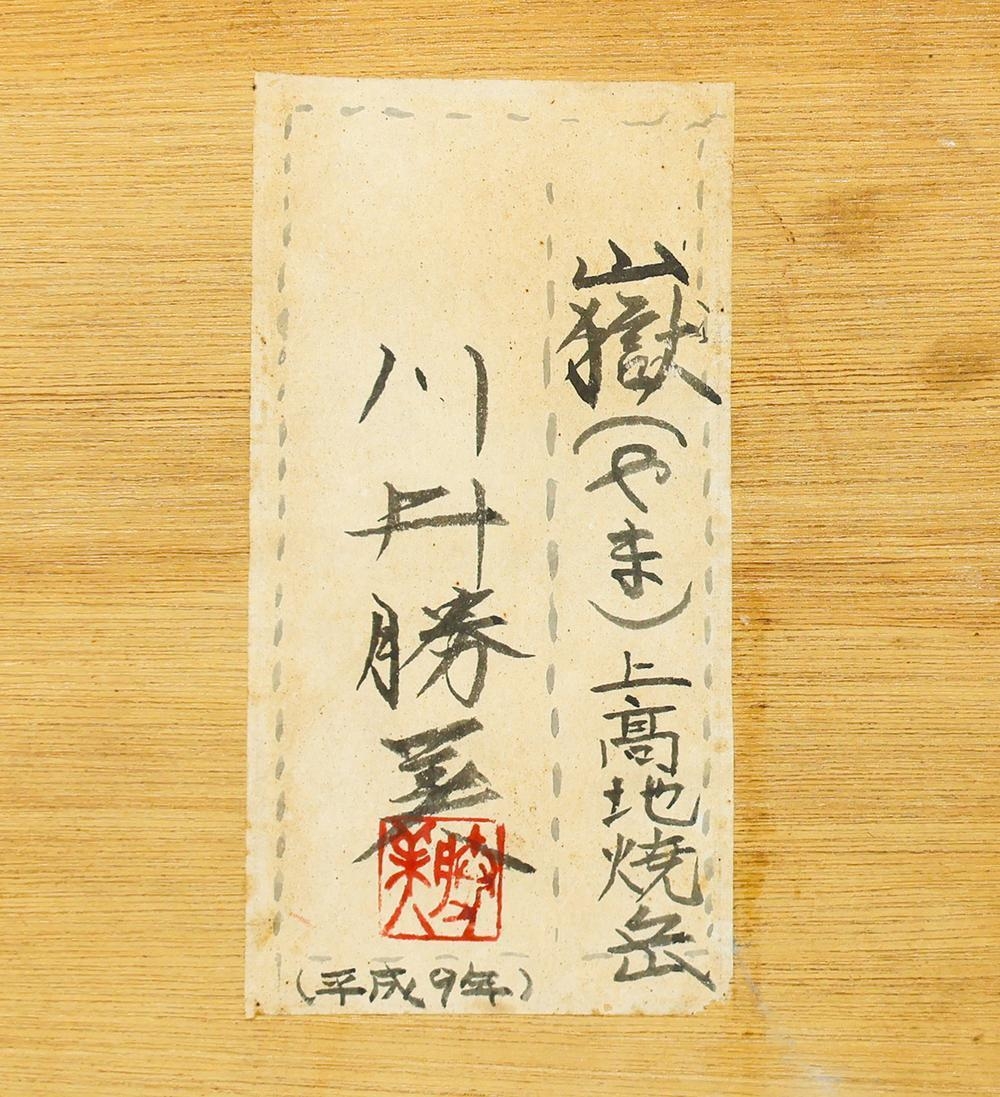 嶽(やま) 上高地焼岳
川井勝美
勝美
(平成9年)